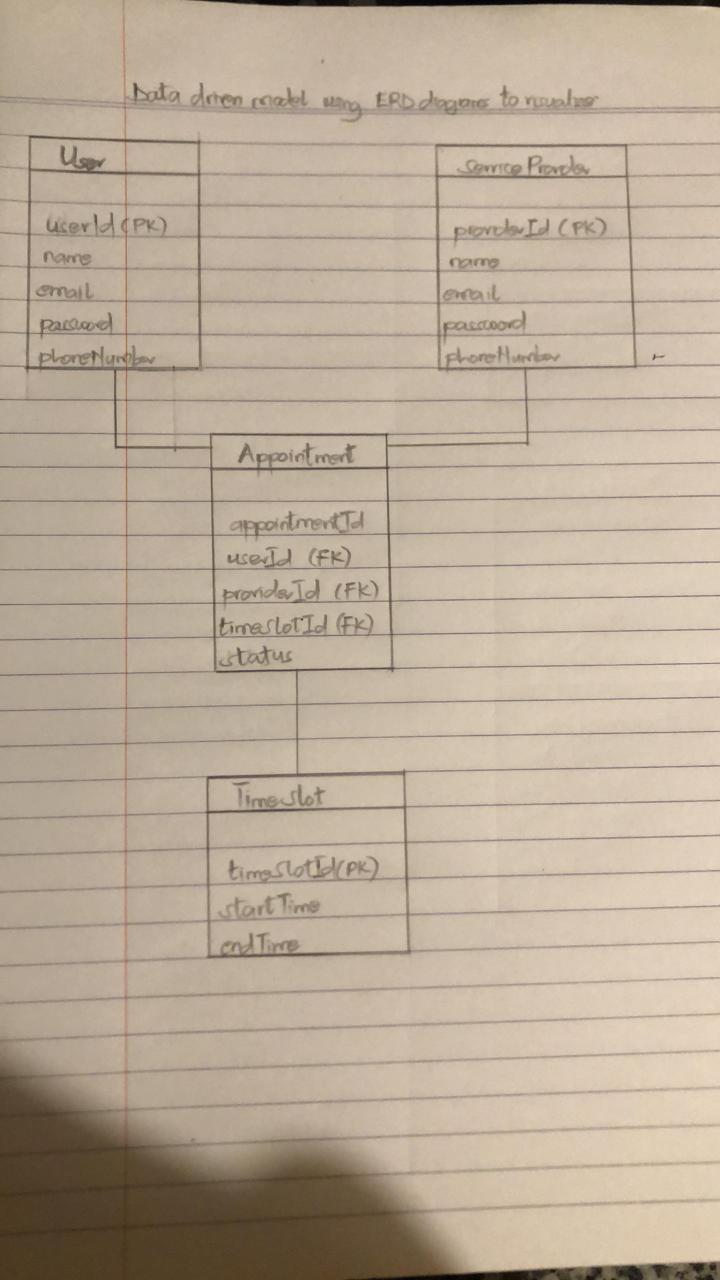 Data driven model using ERD diagrams to visualize
User
userId (PK)
name
email
password
phoneNumber
Service Provider
providerId (PK)
name
email
password
phoneNumber
Appointment
appointmentId
userId (FK)
providerId (FK)
timeslotId (FK)
status
Timeslot
timeslotId (PK)
startTime
endTime